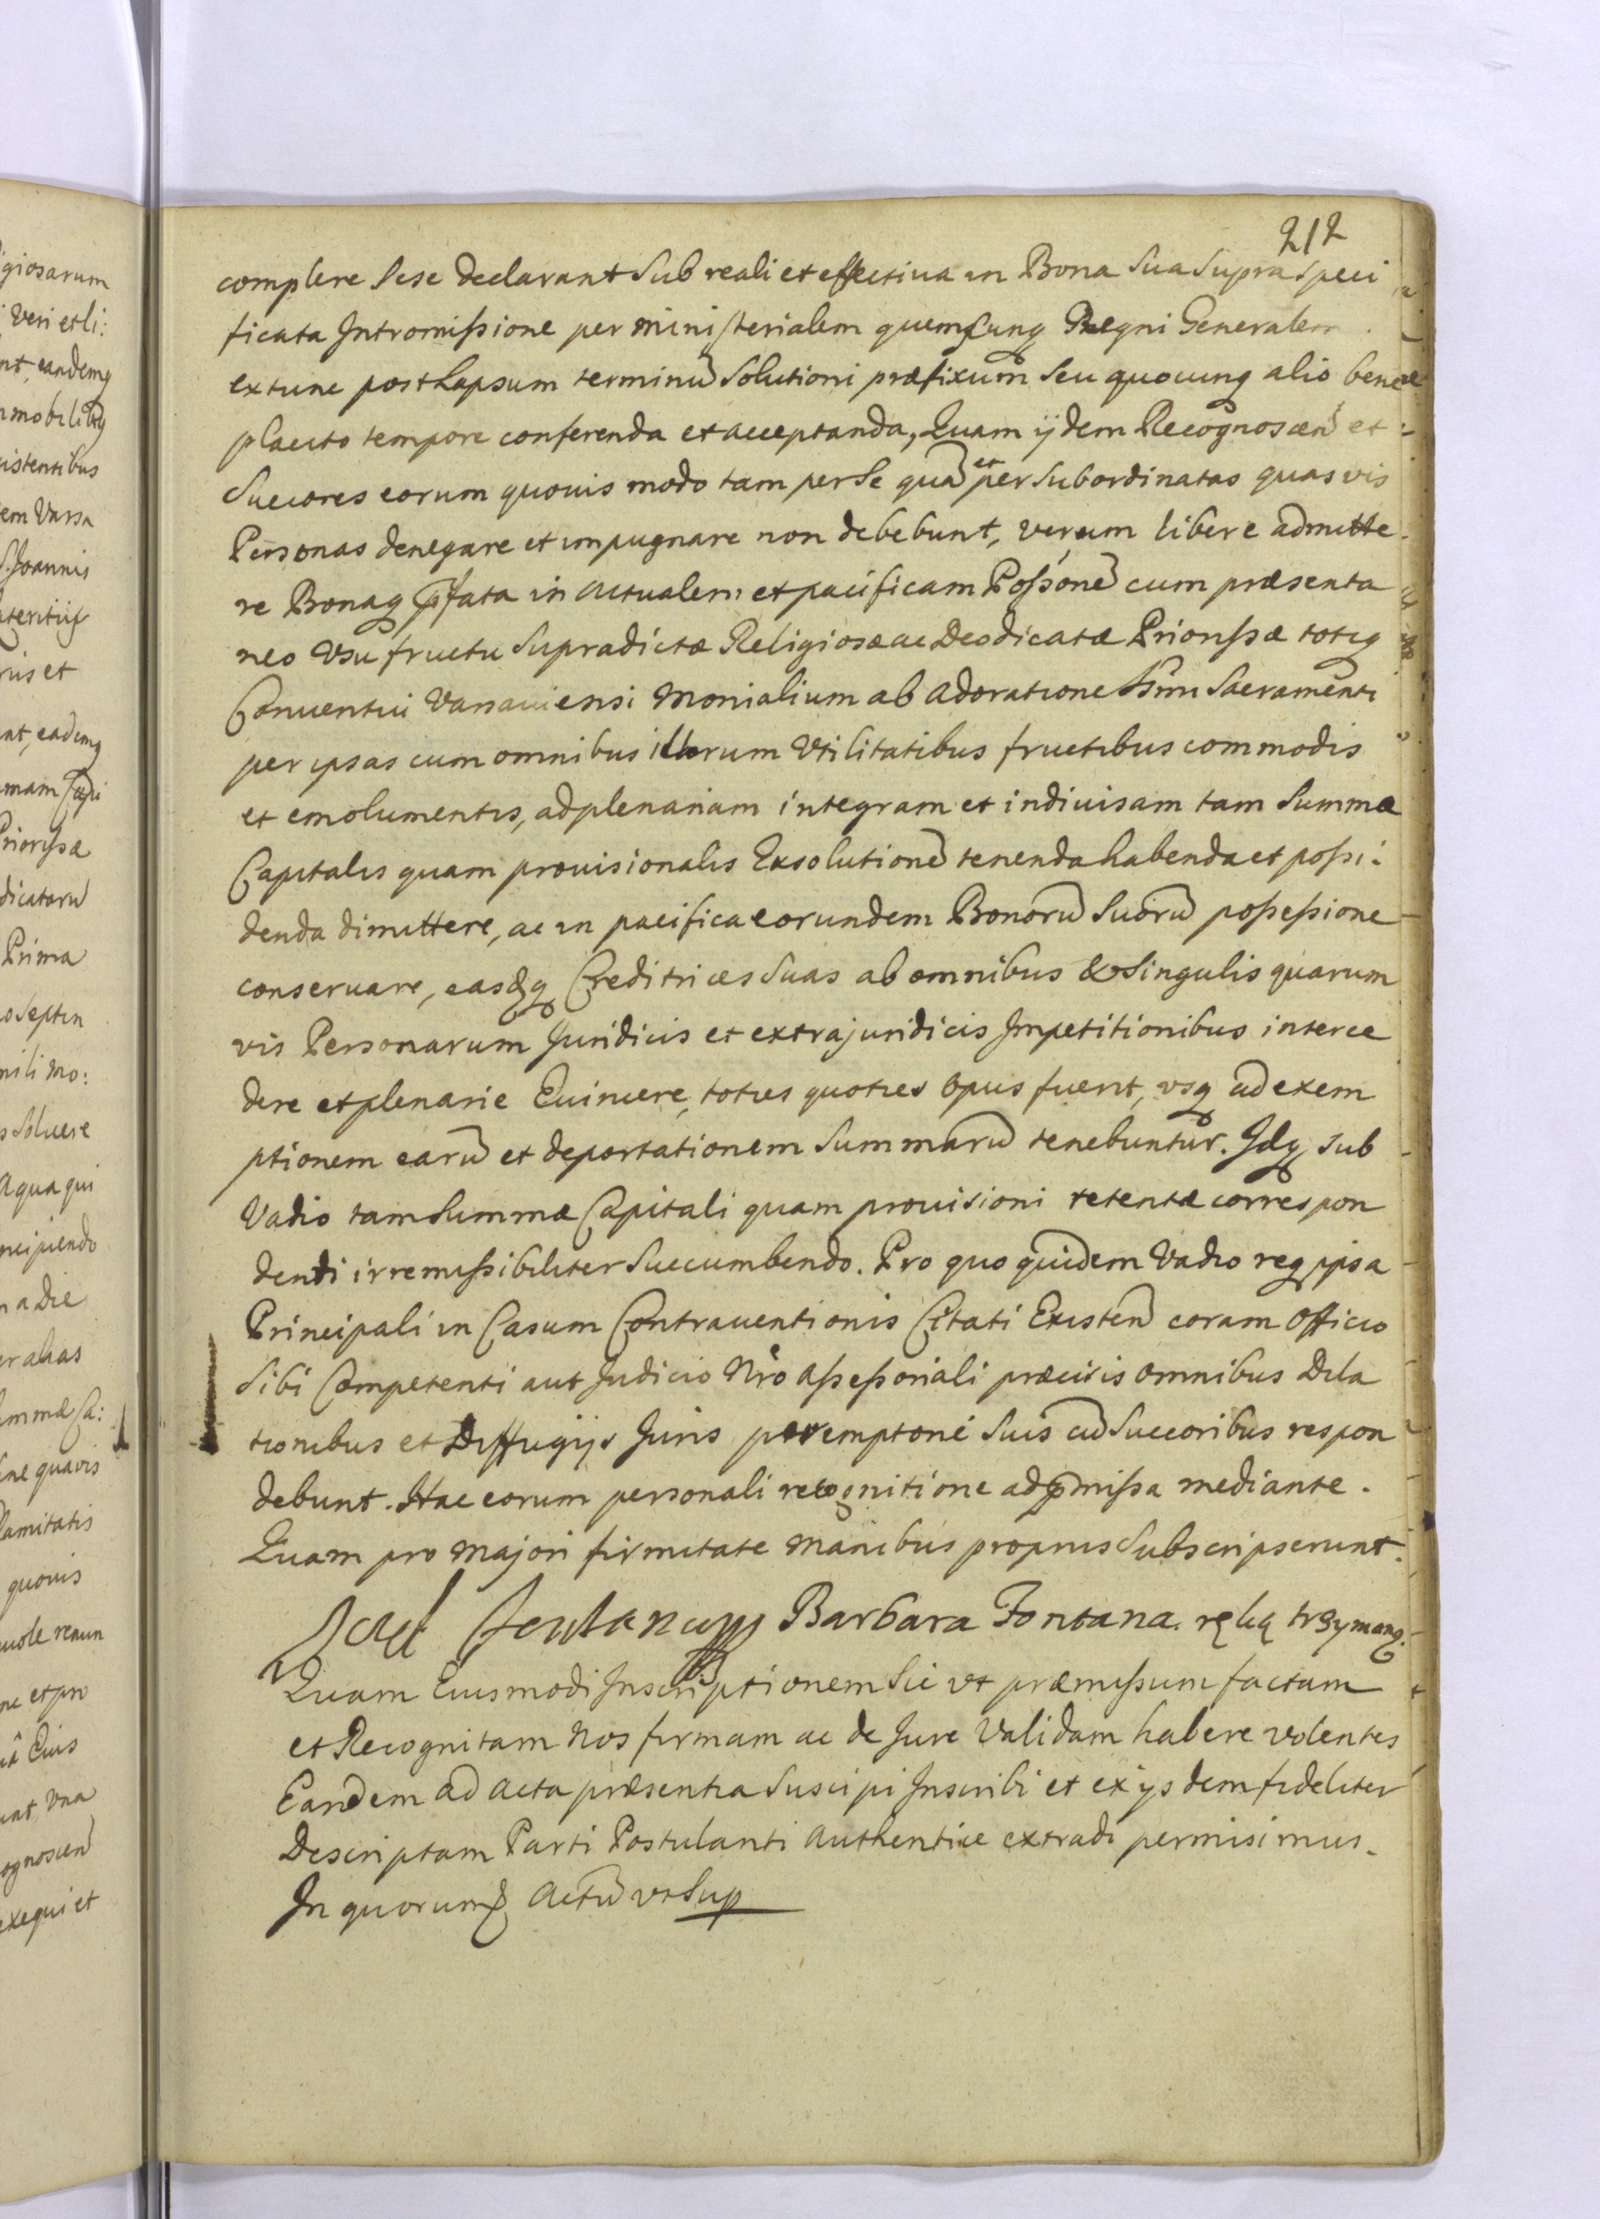 212
complere Sese declarant Sub reali et effectiua in Bona Sua Supra speci
ficata Intromissione per ministerialem quemcunq Regni Generalem
extunc post Lapsum terminũ Solutioni præfixum Seu quocunq alio bene
placito tempore conferenda et acceptanda, Quam ijdem Recognoscen et
Succores eorum quouis modo tam per Se quã et per Subordinatas quasvis
Personas denegare et impugnare non debebunt, verum libere admitte
re Bonaq pfata in actualem et pacificam Possonẽ cum præsenta
neo Vsu fructu Supradictæ Religiosæ ac Deodicatæ Priorissæ totiq
Conuentui Varsauiensi Monialium ab adoratione Ssmi Sacramenti
per ipsas cum omnibus illorum Vtilitatibus fructibus commodis
et emolumentis, ad plenariam integram et indiuisam tam Summæ
Capitalis quam prouisionalis Exsolutionẽ tenenda habenda et possi:
denda dimittere, ac in pacifica eorundem Bonorũ Suorũ possessione
conseruare, easdq Creditrices Suas ab omnibus & Singulis quarum
vis Personarum Juridicis et extrajuridicis Impetitionibus interce
dere et plenarie Euincere, toties quoties opus fuerit, vsq ad exem
ptionem earũ et deportationem Summarũ tenebuntur. Idq sub
Vadio tam Summæ Capitali quam prouisioni retentæ correspon
denti irremissibiliter Succumbendo. Pro quo quidem Vadio req ipsa
Principali in Casum Contrauentionis Citati Existen coram Officio
Sibi Competenti aut Judicio Nro Assessoriali præcisis omnibus Dila
tionibus et Diffugijs Juris peremptorie Suis cũ Succoribus respon
debunt. Hac eorum personali recognitione ad pmissa mediante.
Quam pro majori firmitate manibus proprijs Subscripserunt.
Barbara Fontana. ręką trzymaną.
Quam Eiusmodi Inscriptionem Sic vt præmissum factam
et Recognitam Nos firmam ac de Jure Validam habere volentes
Eandem ad Acta præsentia Suscipi Inscribi et ex ijsdem fideliter
Descriptam Parti Postulanti Authentice extradi permisimus.
In quorum Actũ vt Sup